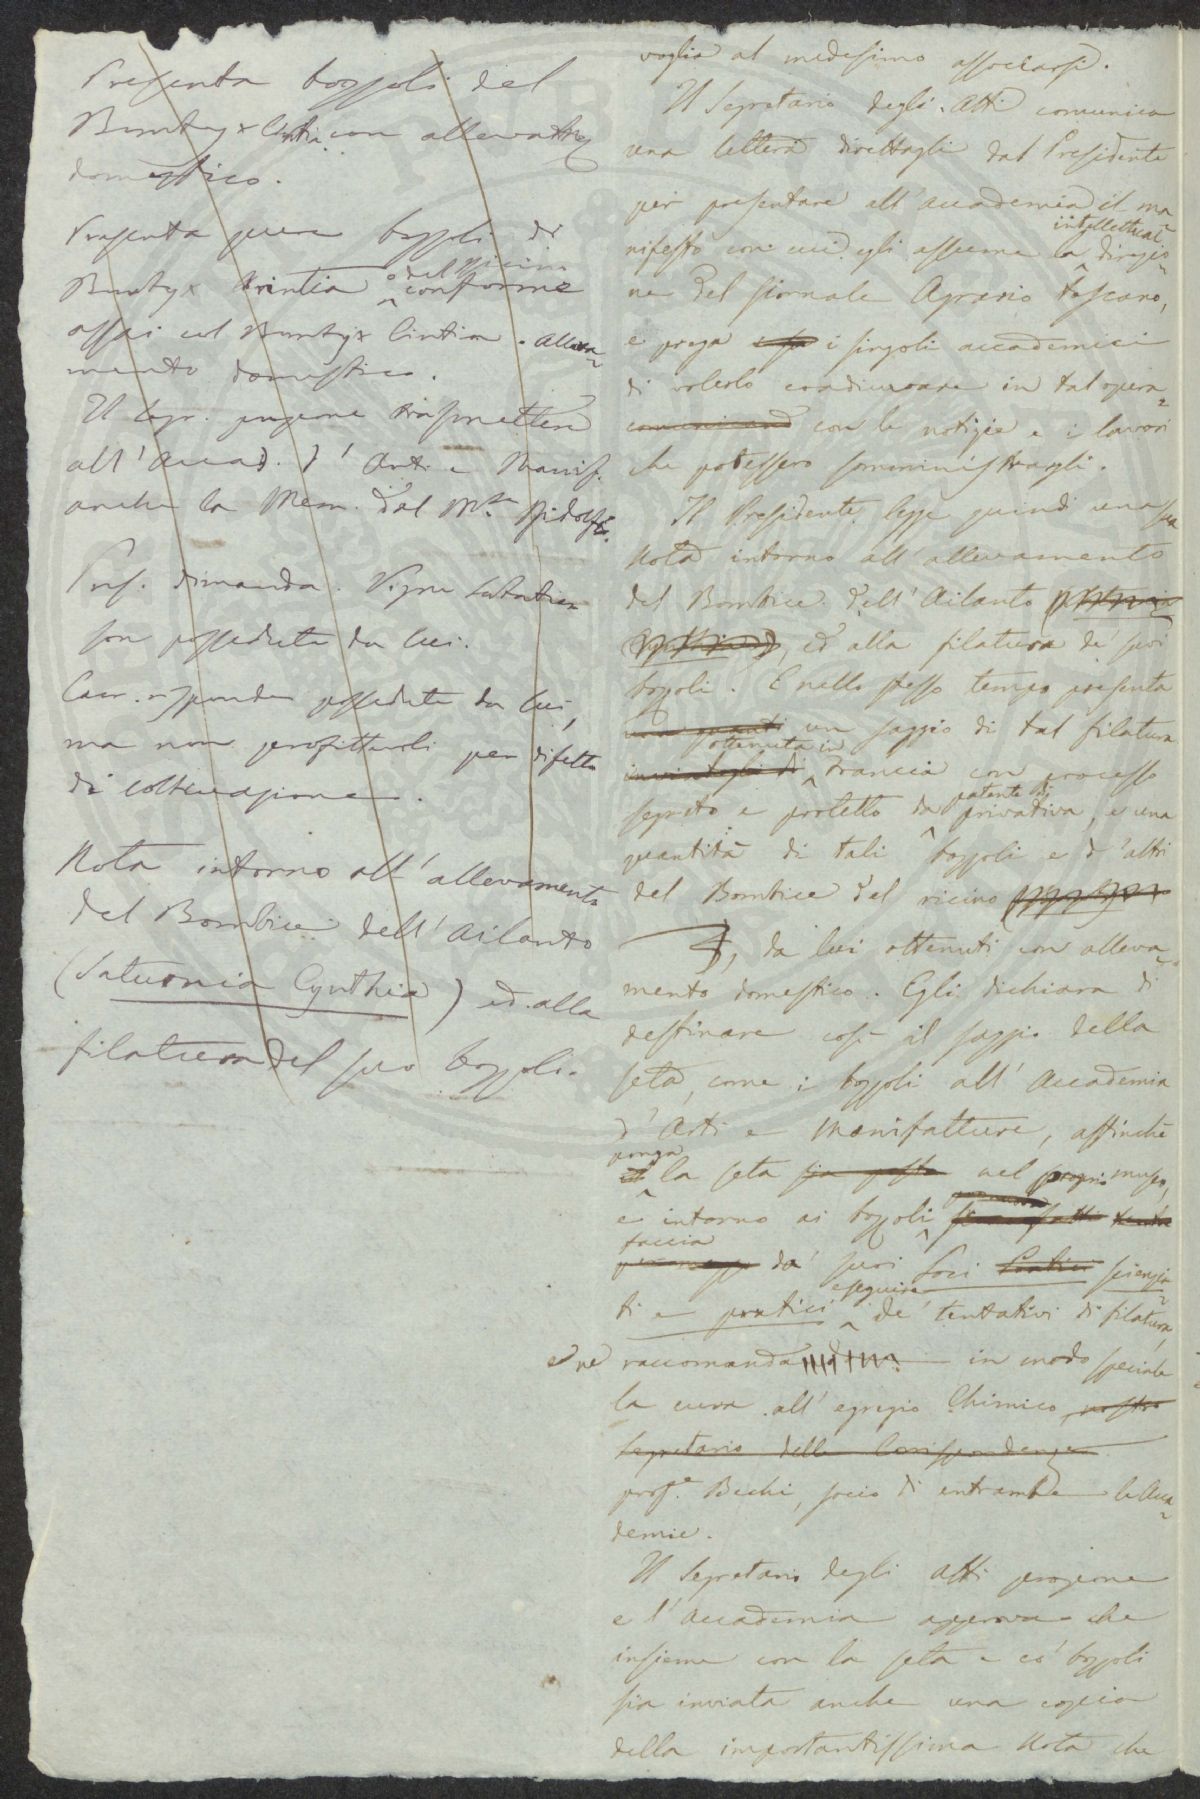 Presenta bozzoli del
Bombyx Cintia con allevatra
domestico.
Presenta pure bozzoli di
Bombyx Arintia o del Ricino conforme
assai col Bombyx Cintia. Alleva=
mento domestico.
Il Segr. propone trasmettere
all'Accad. d'Arti e Manif.
anche la Mem. del M.se Ridolfi.
Prof. dimanda.
son possedute da lui.
Cav. risponde possedute da lui,
ma non profittevoli per difetto
di coltivazione.
Nota intorno all'allevamento
del Bombice dell'Ailanto
(Saturnia Cynthia) ed alla
filatura del suo bozzolo.
voglia al medesimo associarsi.
Il Segretario degli Atti comunica
una lettera direttagli dal Presidente
per presentare all'accademia il ma=
nifesto con cui egli assume la intellettual direzio=
ne del Giornale Agrario toscano,
e prega i singoli accademici
di volerlo coadiuvare in tal opera=
comunicand con le notizie e i lavori
che potessero somministrargli.
Il Presidente legge quindi una sua
Nota intorno all'allevamento
del Bombice dell'Ailanto
, ed alla filatura de' suoi
bozzoli. E nello stesso tempo presenta
una quanti un saggio di tal filatura
inviatogli di ottenuta in Francia con processo
segreto e protetto da patente di privativa, e una
quantità di tali bozzoli e d'altri
del Bombice del ricino
, da lui ottenuti con alleva=
mento domestico. Egli dichiara di
destinare così il saggio della
seta, come i bozzoli all'Accademia
d'Arti e Manifatture, affinchè
ponga la seta sia posta nel proprio museo,
e intorno ai bozzoli sieno fatti
faccia da' suoi Soci Pratici scienzia=
ti e pratici eseguire de' tentativi di filatura,
e ne raccomanda in modo speciale
la cura all'egregio Chimico nostro
Segretario delle Corrispondenze
prof.e Bechi, socio di entrambe le Acca=
demie.
Il Segretario degli Atti propone
e l'Accademia approva che
insieme con la seta e co' bozzoli
sia inviata anche una copia
della importantissima Nota che